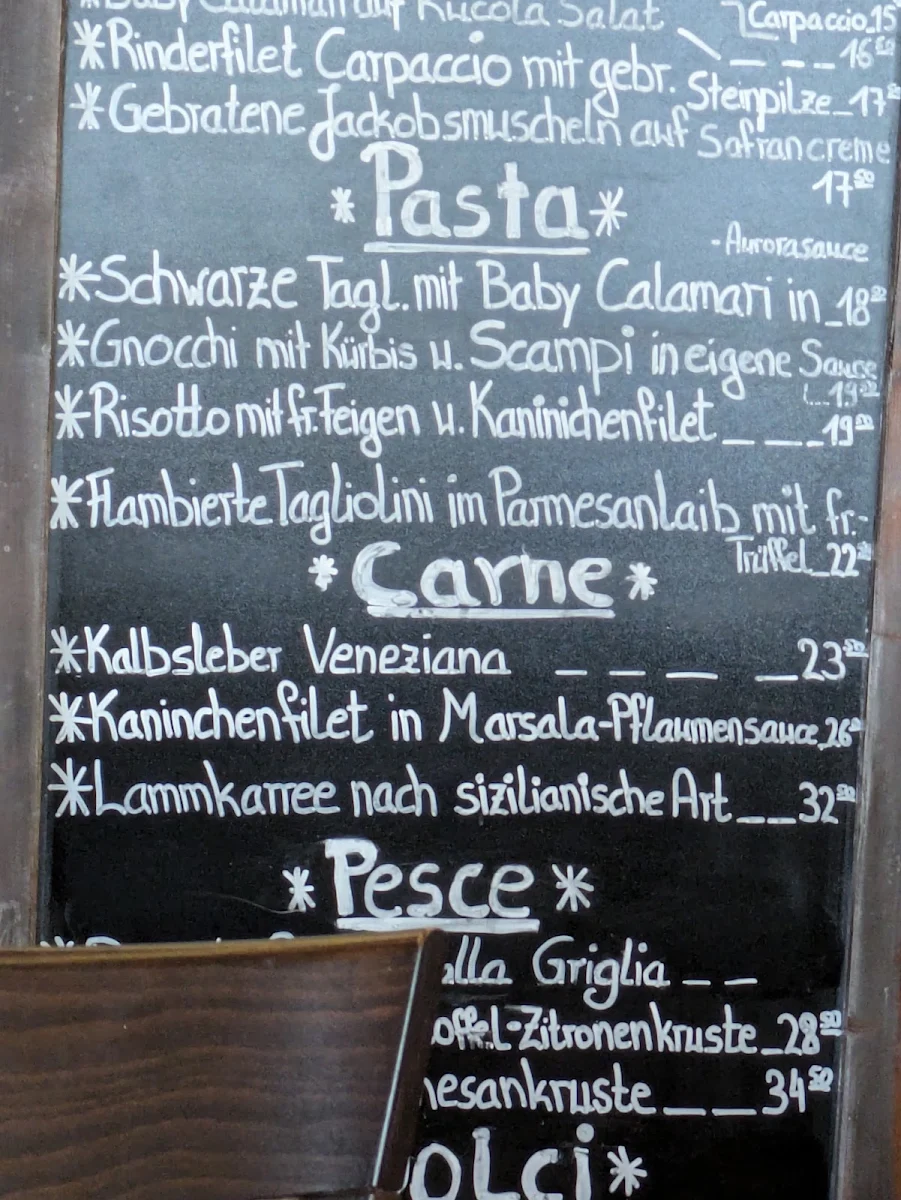 *Baby Calamari auf Rucola Salat
Carpaccio_15
_ _ _ 16 50
*Rinderfilet Carpaccio mit gebr. Steinpilze_17
*Gebratene Jackobsmuscheln auf Safrancreme
17 50
*Pasta*
-Aurorasauce
*Schwarze Tagl. mit Baby Calamari in _18
*Gnocchi mit Kürbis u. Scampi in eigene Sauce
_19
*Risotto mit fr. Feigen u. Kaninichenfilet _ _ _ 19
*Flambierte Tagliolini im Parmesanlaib mit fr.-
Trüffel_22
*Carne*
*Kalbsleber Veneziana _ _ _ _ 23
*Kaninchenfilet in Marsala-Pflaumensauce_26
*Lammkarree nach sizilianische Art _ _ 32
*Pesce*
alla Griglia _ _
offel-Zitronenkruste _28 50
esankruste _ _ _ 34 50
olci*